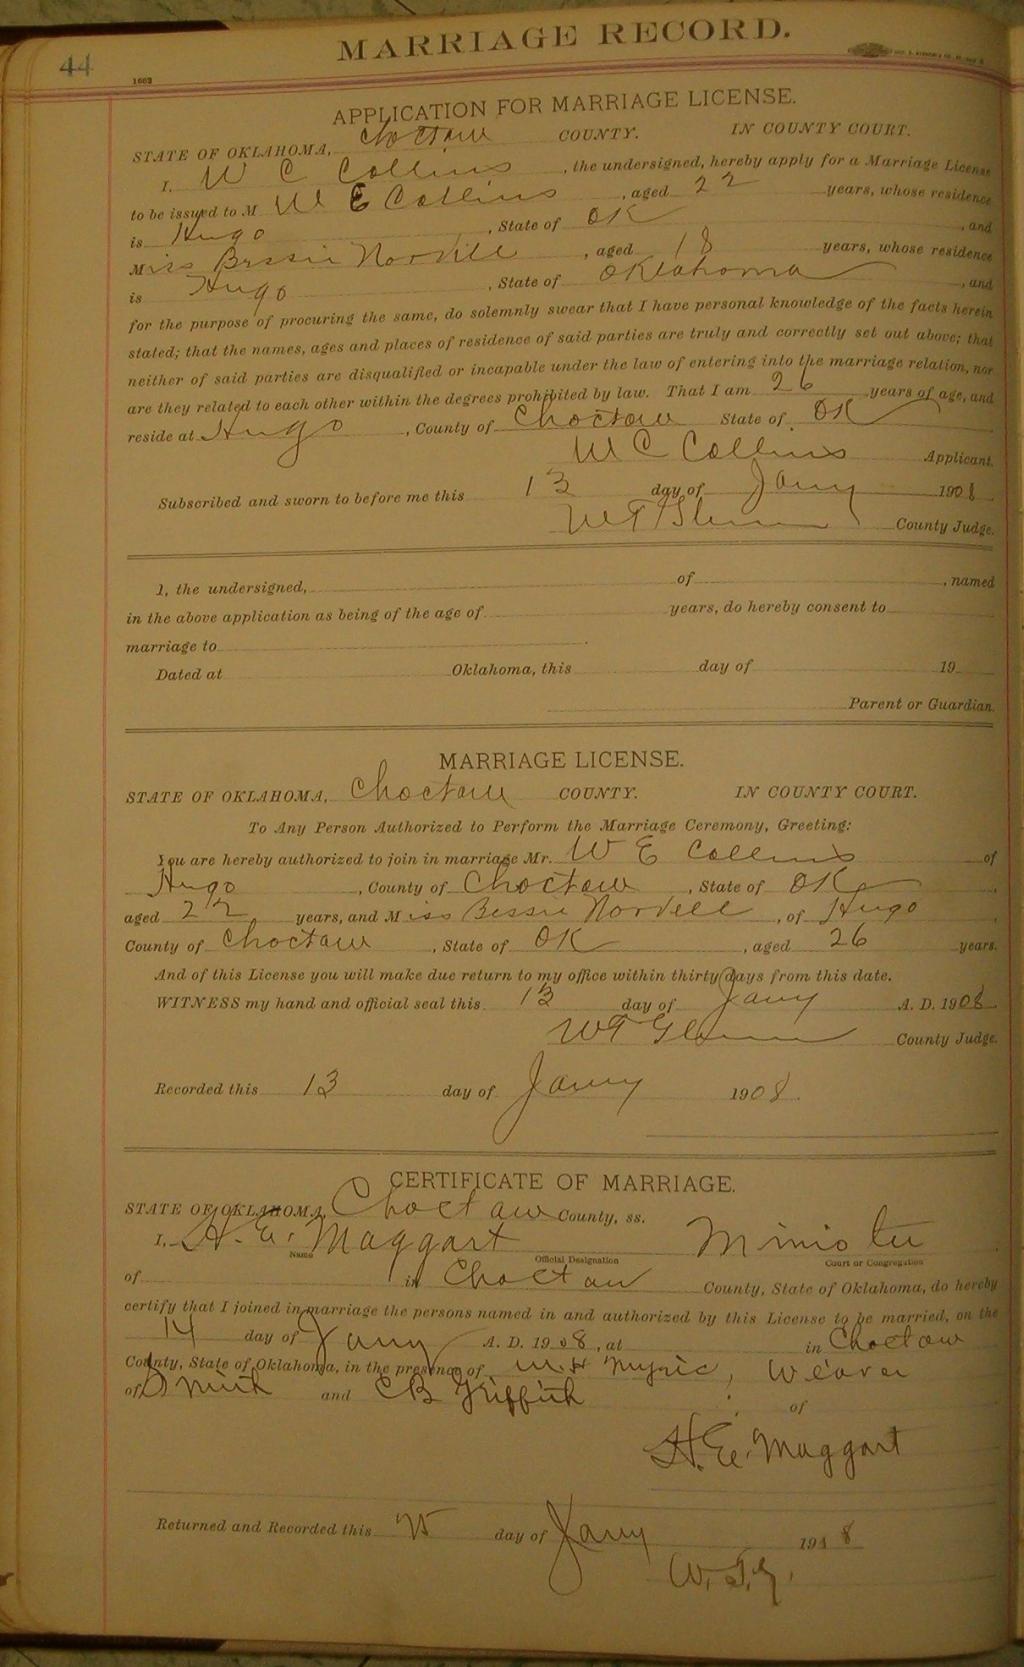 44
MARRIAGE RECORD.
1662
APPLICATION FOR MARRIAGE LICENSE.
STATE OF OKLAHOMA, Choctaw COUNTY. IN COUNTY COURT.
I, W C Collins, the undersigned, hereby apply for a Marriage License
to be issued to M W E Collins, aged 22 years, whose residence
is Hugo, State of OK, and
Miss Bessie Norvell, aged 18 years, whose residence
is Hugo, State of Oklahoma, and
for the purpose of procuring the same, do solemnly swear that I have personal knowledge of the facts herein
stated; that the names, ages and places of residence of said parties are truly and correctly set out above; that
neither of said parties are disqualified or incapable under the law of entering into the marriage relation, nor
are they related to each other within the degrees prohibited by law. That I am 26 years of age, and
reside at Hugo, County of Choctaw State of OK
W C Collins Applicant.
Subscribed and sworn to before me this 13 day of Jany 1908
W T Glenn County Judge.
I, the undersigned, of , named
in the above application as being of the age of years, do hereby consent to
marriage to
Dated at Oklahoma, this day of 19
Parent or Guardian.
MARRIAGE LICENSE.
STATE OF OKLAHOMA, Choctaw COUNTY. IN COUNTY COURT.
To Any Person Authorized to Perform the Marriage Ceremony, Greeting:
You are hereby authorized to join in marriage Mr. W E Collins of
Hugo, County of Choctaw, State of OK,
aged 22 years, and Miss Bessie Norvell, of Hugo
County of Choctaw, State of OK, aged 26 years.
And of this License you will make due return to my office within thirty days from this date.
WITNESS my hand and official seal this 13 day of Jany A. D. 1908
W T Glenn County Judge.
Recorded this 13 day of Jany 1908.
CERTIFICATE OF MARRIAGE.
STATE OF OKLAHOMA, Choctaw County, ss.
I, H. E. Maggart Minister
Name Official Designation Court or Congregation
of in Choctaw County, State of Oklahoma, do hereby
certify that I joined in marriage the persons named in and authorized by this License to be married, on the
14 day of Jany A. D. 1908, at in Choctaw
County, State of Oklahoma, in the presence of Weaver
of Smith and CB Griffith of
H. E. Maggart
Returned and Recorded this day of Jany 1908
W. T. G.